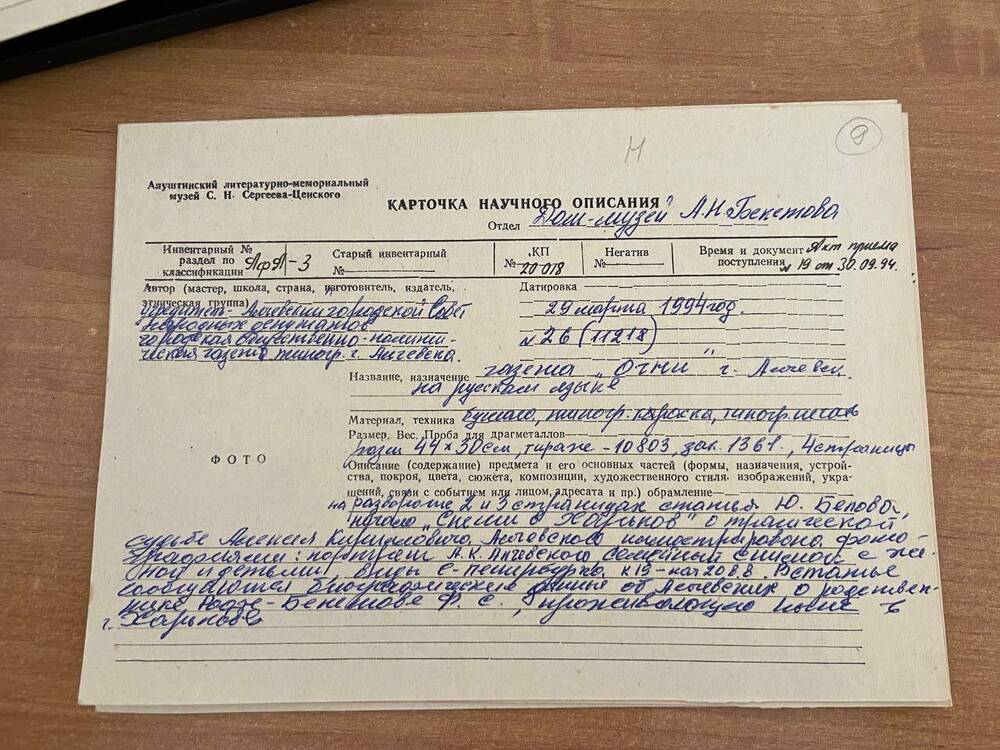 9
Н
Алуштинский литературно-мемориальный
музей С. Н. Сергеева-Ценского
КАРТОЧКА НАУЧНОГО ОПИСАНИЯ
Отдел „Дом-музей" А.Н.Бекетова
Инвентарный №
раздел по
классификации АфА-3
Старый инвентарный
№
КП
№ 20 018
Негатив
№
Время и документ Акт приема
поступления № 19 от 30.09.94.
Автор (мастер, школа, страна, изготовитель, издатель,
этническая группа)
учредитель - Алчевский городской Совет
народных депутатов
городская общественно-полити-
ческая газета, типогр. г. Алчевска.
Датировка
29 марта 1994 год.
№ 26 (11218)
Название, назначение газета „Огни" г. Алчевск.
на русском языке
Материал, техника бумага, типогр. краска, типогр. печать
Размер. Вес. Проба для драгметаллов
разм 44×30см, тираж - 10803, зак. 1361, 4 страницы
ФОТО
Описание (содержание) предмета и его основных частей (формы, назначения, устрой-
ства, покроя, цвета, сюжета, композиции, художественного стиля изображений, укра-
шений, связи с событием или лицом, адресата и пр.) обрамление
на развороте 2 и 3 страницах статья Ю. Белова,
начало „ в Харьков" о трагической
судьбе Алексея Кирилловича Алчевского иллюстрировано фото-
графиями: портрет А.К. Алчевского семейный снимок с же-
ной и детьми, виды С-петербурга к 19 - нач 20 в.в. В статье
сообщаются биографические данные об Алчевских, о родствен-
нице Ф. С., проживающую ныне в
г. Харькове